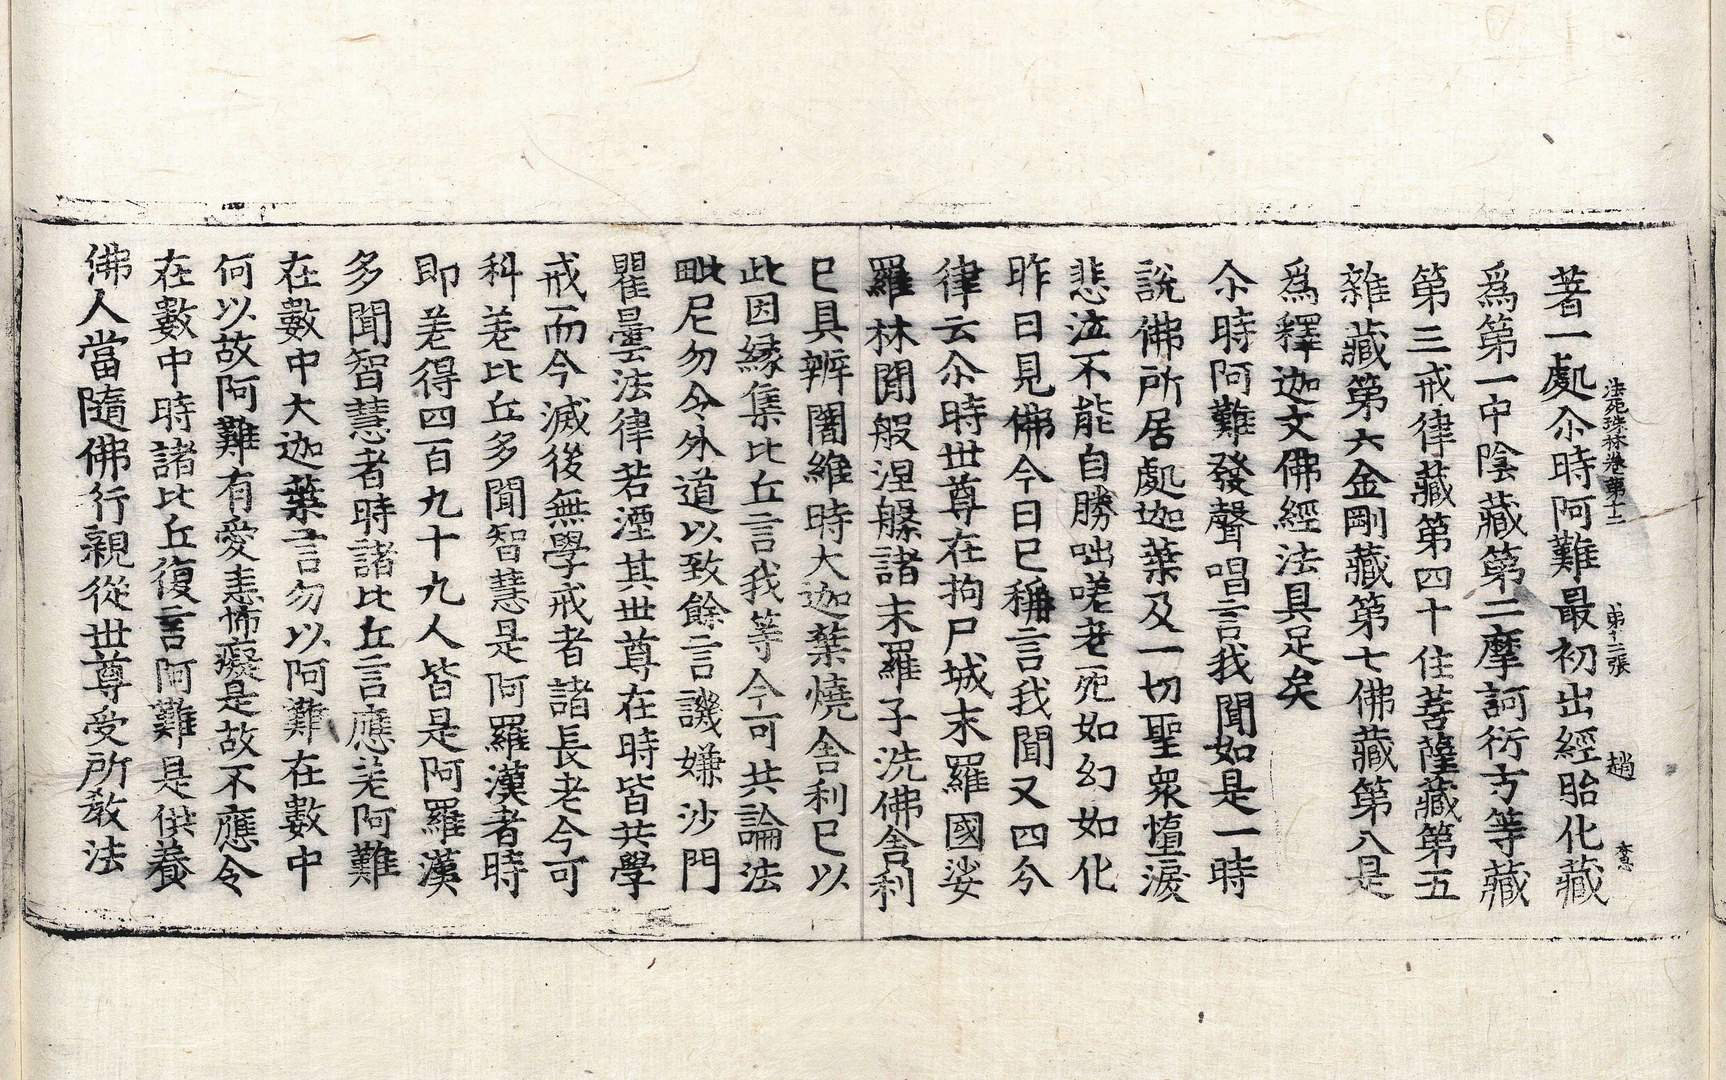 法苑珠林卷第十二　第十二張　趙
著一處尒時阿難最初出經胎化藏
爲第一中陰藏第二摩訶衍方等藏
第三戒律藏第四十住菩薩藏第五
雜藏第六金剛藏第七佛藏第八是
爲釋迦文佛經法具足矣
尒時阿難發聲唱言我聞如是一時
說佛所居處迦葉及一切聖衆墮淚
悲泣不能自勝咄嗟老死如幻如化
昨日見佛今日已稱言我聞又四分
律云尒時世尊在拘尸城末羅國娑
羅林閒般涅槃諸末羅子洗佛舍利
已具辦闍維時大迦葉燒舍利已以
此因緣集比丘言我等今可共論法
毗尼勿令外道以致餘言譏嫌沙門
瞿曇法律若湮其世尊在時皆共學
戒而今滅後無學戒者諸長老今可
科差比丘多聞智慧是阿羅漢者時
即差得四百九十九人皆是阿羅漢
多聞智慧者時諸比丘言應差阿難
在數中大迦葉言勿以阿難在數中
何以故阿難有愛恚怖癡是故不應令
在數中時諸比丘復言阿難是供養
佛人當隨佛行親從世尊受所教法